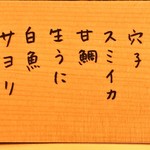 穴子
スミイカ
甘鯛
生うに
白魚
サヨリ